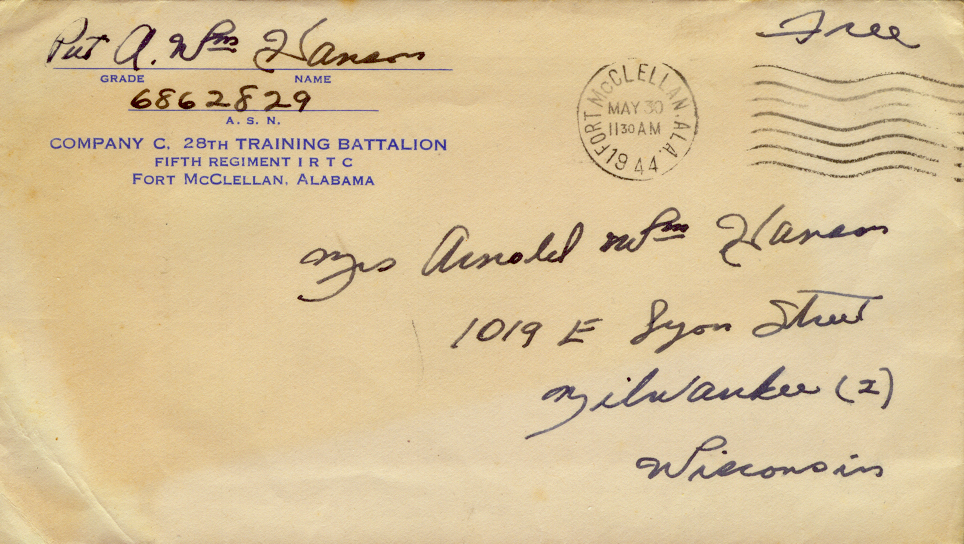 Pvt A. Wm Hanson
GRADE NAME
6862829
A. S. N.
COMPANY C, 28TH TRAINING BATTALION
FIFTH REGIMENT I R T C
FORT MCCLELLAN, ALABAMA
Free
FORT McCLELLAN. ALA.
MAY 30
1130 AM
1944
Mrs Arnold Wm Hanson
1019 E Lyon Street
Milwaukee (2)
Wisconsin